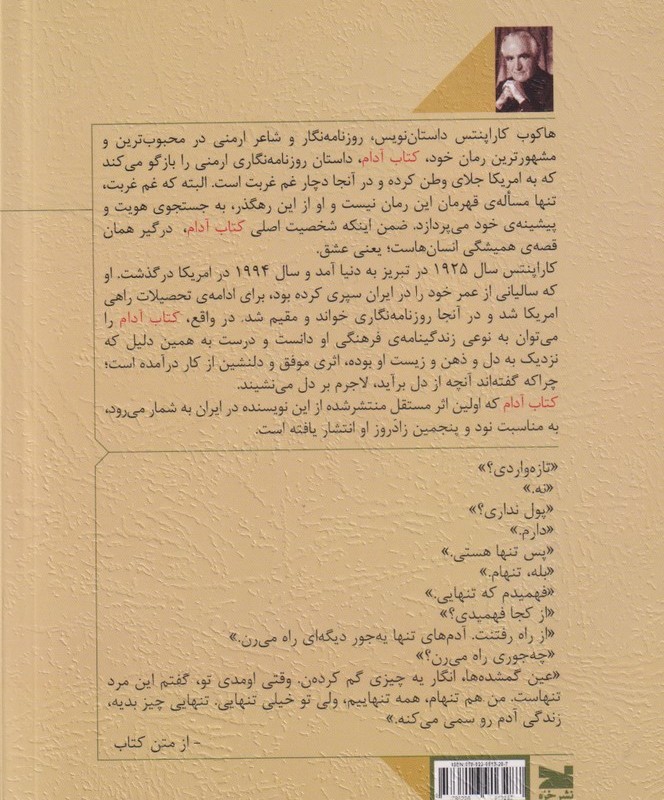 هاکوب کاراپنتس داستان‌نویس، روزنامه‌نگار و شاعر ارمنی در محبوب‌ترین و
مشهورترین رمان خود، کتاب آدام، داستان روزنامه‌نگاری ارمنی را بازگو می‌کند
که به امریکا جلای وطن کرده و در آنجا دچار غم غربت است. البته که غم غربت،
تنها مسأله‌ی قهرمان این رمان نیست و او از این رهگذر، به جستجوی هویت و
پیشینه‌ی خود می‌پردازد. ضمن اینکه شخصیت اصلی کتاب آدام، درگیر همان
قصه‌ی همیشگی انسان‌هاست؛ یعنی عشق.
کاراپنتس سال ۱۹۲۵ در تبریز به دنیا آمد و سال ۱۹۹۴ در امریکا درگذشت. او
که سالیانی از عمر خود را در ایران سپری کرده بود، برای ادامه‌ی تحصیلات راهی
امریکا شد و در آنجا روزنامه‌نگاری خواند و مقیم شد. در واقع، کتاب آدام را
می‌توان به نوعی زندگینامه‌ی فرهنگی او دانست و درست به همین دلیل که
نزدیک به دل و ذهن و زیست او بوده، اثری موفق و دلنشین از کار درآمده است؛
چراکه گفته‌اند آنچه از دل برآید، لاجرم بر دل می‌نشیند.
کتاب آدام که اولین اثر مستقل منتشرشده از این نویسنده در ایران به شمار می‌رود،
به مناسبت نود و پنجمین زادروز او انتشار یافته است.
«تازه‌واردی؟»
«نه.»
«پول نداری؟»
«دارم.»
«پس تنها هستی.»
«بله، تنهام.»
«فهمیدم که تنهایی.»
«از کجا فهمیدی؟»
«از راه رفتنت. آدم‌های تنها یه‌جور دیگه‌ای راه می‌رن.»
«چه‌جوری راه می‌رن؟»
«عین گمشده‌ها، انگار یه چیزی گم کرده‌ن. وقتی اومدی تو، گفتم این مرد
تنهاست. من هم تنهام، همه تنهاییم، ولی تو خیلی تنهایی. تنهایی چیز بدیه،
زندگی آدم رو سمی می‌کنه.»
- از متن کتاب
نشر خزه